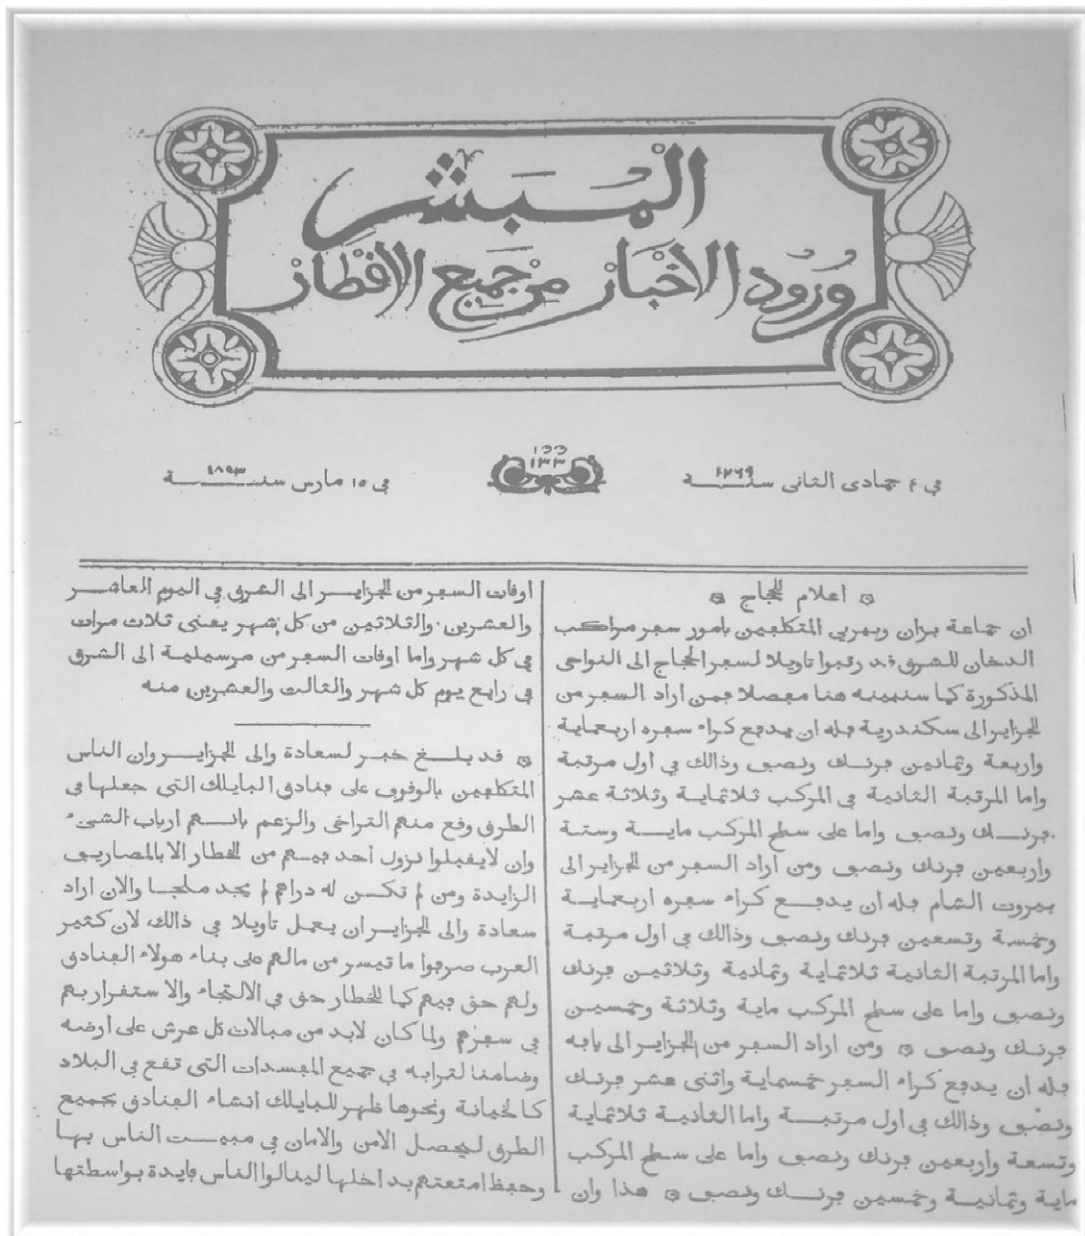 المبشر
ورود الاخبار من جميع الاقطار
في ٤ جمادى الثاني سنة ١٢٦٩
١٣٣
في ١٥ مارس سنة ١٨٥٣
اعلام للحجاج
ان جماعة بزان وبيربي المتكلفين بامور سفر مراكب
الدخان للشرق قد رتبوا تاويلا لسفر الحجاج الى النواحي
المذكورة كما سنبينه هنا مفصلا فمن اراد السفر من
الجزاير الى سكندرية فله ان يدفع كراء سفره اربعماية
واربعة وثمانين فرنك ونصف وذالك في اول مرتبة
واما المرتبة الثانية في المركب ثلاثماية وثلاثة عشر
فرنك ونصف واما على سطح المركب ماية وستة
واربعين فرنك ونصف ومن اراد السفر من الجزاير الى
بيروت الشام فله ان يدفع كراء سفره اربعماية
وخمسة وتسعين فرنك ونصف وذالك في اول مرتبة
واما المرتبة الثانية ثلاثماية وثمانية وثلاثين فرنك
ونصف واما على سطح المركب ماية وثلاثة وخمسين
فرنك ونصف ومن اراد السفر من الجزاير الى يافه
فله ان يدفع كراء السفر خمسماية واثنى عشر فرنك
ونصف وذالك في اول مرتبة واما الثانية ثلاثماية
وتسعة واربعين فرنك ونصف واما على سطح المركب
ماية وثمانية وخمسين فرنك ونصف هذا وان
اوقات السفر من الجزاير الى الشرق في اليوم العاشر
والعشرين والثلاثين من كل شهر يعنى ثلاث مرات
في كل شهر واما اوقات السفر من مرسيلية الى الشرق
في رابع يوم كل شهر والثالث والعشرين منه
قد بلغ خبر لسعادة والى الجزاير وان الناس
المتكلفين بالوقوف على فنادق البايلك التي جعلها في
الطرق وقع منهم التراخي والزعم بانهم ارباب الشيء
وان لا يقبلوا نزول أحد فيهم من الخطار الا بالمصاريف
الزايدة ومن لم تكن له دراهم لم يجد ملجا والان اراد
سعادة والى الجزاير ان يعمل تاويلا في ذالك لان كثير
العرب صرفوا ما تيسر من مالهم على بناء هولاء الفنادق
ولهم حق فيهم كما للخطار حق في الالتجاء والاستقرار بهم
في سفرهم ولما كان لابد من مبالات كل عرش على أرضه
وضامنا لترابه في جميع المفسدات التي تقع في البلاد
كالخيانة ونحوها ظهر للبايلك انشاء الفنادق بجميع
الطرق ليحصل الامن والامان في مبيت الناس بها
وحفظ امتعتهم بداخلها لينالوا الناس فايدة بواسطتها